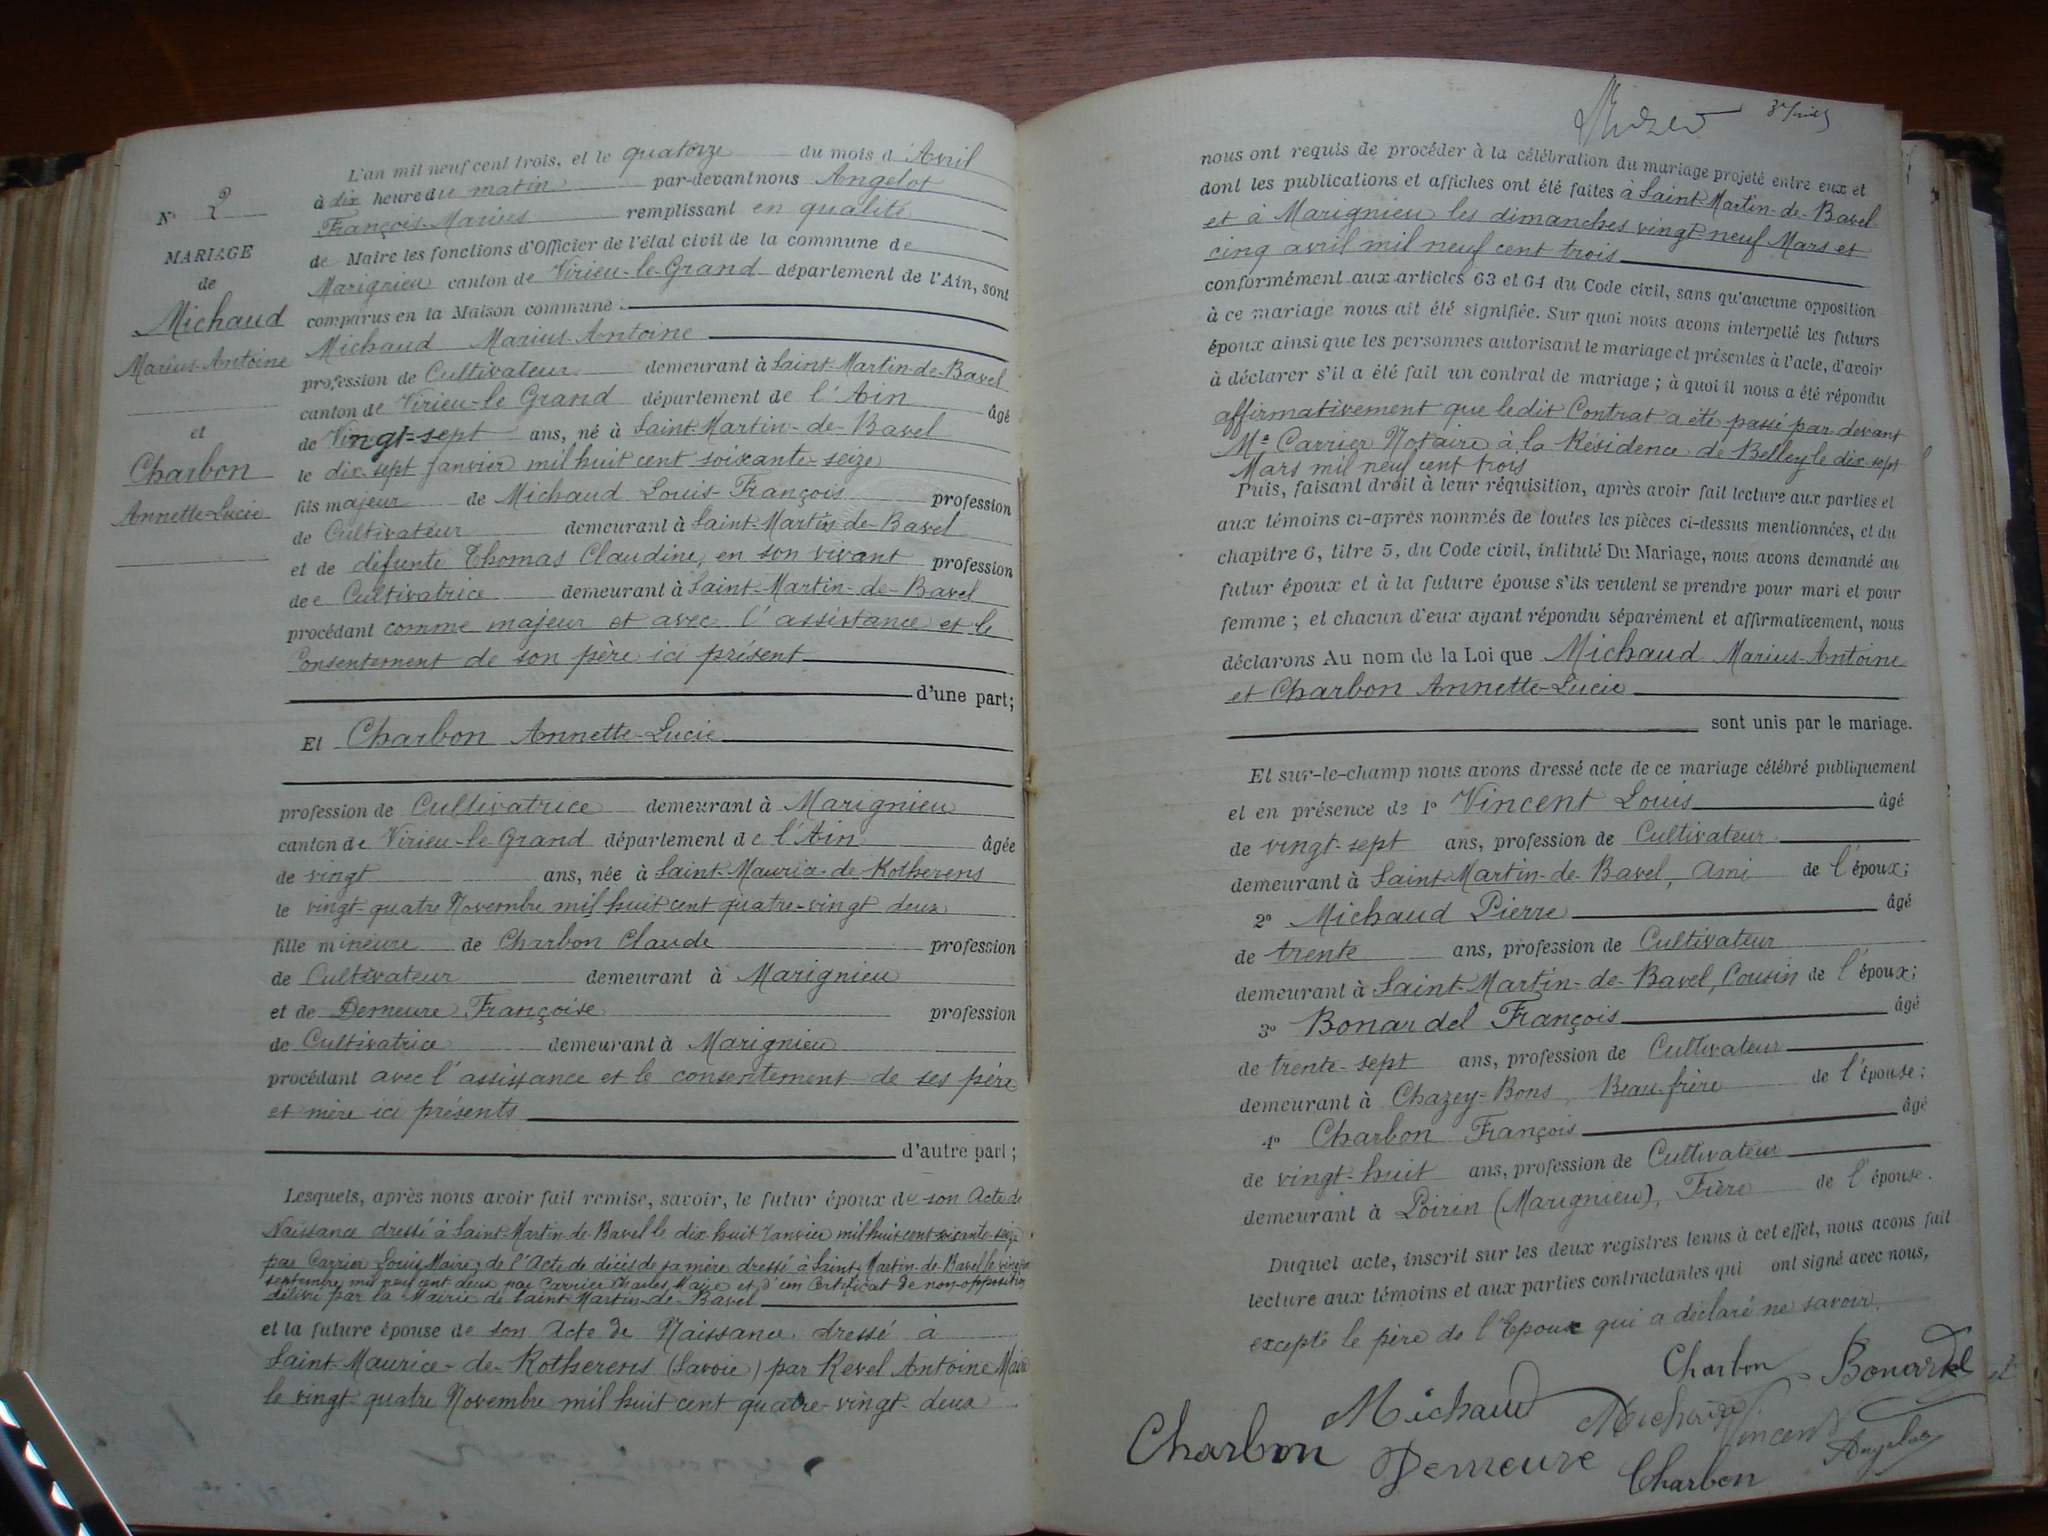 N° 2
MARIAGE
de
Michaud
Marius-Antoine
et
Charbon
Annette-Lucie
L'an mil neuf cent trois, et le quatorze du mois d'Avril
à dix heure du matin par-devant nous Angelot
François-Marius remplissant en qualité
de Maire les fonctions d'Officier de l'état civil de la commune de
Marignieu canton de Virieu-le-Grand département de l'Ain, sont
comparus en la Maison commune :
Michaud Marius-Antoine
profession de Cultivateur demeurant à Saint-Martin-de-Bavel
canton de Virieu-le Grand département de l'Ain âgé
de Vingt-sept ans, né à Saint-Martin-de-Bavel
le dix-sept Janvier mil huit cent soixante-seize
fils majeur de Michaud Louis-François profession
de Cultivateur demeurant à Saint-Martin-de-Bavel
et de défunte Thomas Claudine, en son vivant profession
de Cultivatrice demeurant à Saint-Martin-de-Bavel
procédant comme majeur et avec l'assistance et le
Consentement de son père ici présent
d'une part;
Et Charbon Annette-Lucie
profession de Cultivatrice demeurant à Marignieu
canton de Virieu-le-Grand département de l'Ain âgée
de vingt ans, née à Saint-Maurice-de-Rotherens
le vingt-quatre Novembre mil huit cent quatre-vingt deux
fille mineure de Charbon Claude profession
de Cultivateur demeurant à Marignieu
et de Demeure Françoise profession
de Cultivatrice demeurant à Marignieu
procédant avec l'assistance et le consentement de ses père
et mère ici présents
d'autre part;
Lesquels, après nous avoir fait remise, savoir, le futur époux de son Acte de
Naissance dressé à Saint-Martin-de-Bavel le dix huit Janvier mil huit cent soixante-seize
par Carrier Louis Maire; de l'Acte de décès de sa mère dressé à Saint-Martin-de-Bavel le
septembre mil neuf cent deux par Carrier Charles Maire et d'un Certificat de non-opposition
délivré par la Mairie de Saint-Martin-de-Bavel
et la future épouse de son Acte de Naissance dressé à
Saint-Maurice-de-Rotherens (Savoie) par Revel Antoine Maire
le vingt-quatre Novembre mil huit cent quatre-vingt-deux
nous ont requis de procéder à la célébration du mariage projeté entre eux et
dont les publications et affiches ont été faites à Saint-Martin-de-Bavel
et à Marignieu les dimanches vingt-neuf Mars et
cinq avril mil neuf cent trois
conformément aux articles 63 et 64 du Code civil, sans qu'aucune opposition
à ce mariage nous ait été signifiée. Sur quoi nous avons interpellé les futurs
époux ainsi que les personnes autorisant le mariage et présentes à l'acte, d'avoir
à déclarer s'il a été fait un contrat de mariage ; à quoi il nous a été répondu
affirmativement que ledit Contrat a été passé par devant
Me Carrier Notaire à la Résidence de Belley le dix-sept
Mars mil neuf cent trois
Puis, faisant droit à leur réquisition, après avoir fait lecture aux parties et
aux témoins ci-après nommés de toutes les pièces ci-dessus mentionnées, et du
chapitre 6, titre 5, du Code civil, intitulé Du Mariage, nous avons demandé au
futur époux et à la future épouse s'ils veulent se prendre pour mari et pour
femme ; et chacun d'eux ayant répondu séparément et affirmativement, nous
déclarons Au nom de la Loi que Michaud Marius-Antoine
et Charbon Annette-Lucie
sont unis par le mariage.
Et sur-le-champ nous avons dressé acte de ce mariage célébré publiquement
et en présence de 1° Vincent Louis âgé
de vingt-sept ans, profession de Cultivateur
demeurant à Saint-Martin-de-Bavel, Ami de l'époux;
2° Michaud Pierre âgé
de trente ans, profession de Cultivateur
demeurant à Saint-Martin-de-Bavel, Cousin de l'époux;
3° Bonardel François âgé
de trente-sept ans, profession de Cultivateur
demeurant à Chazey-Bons, Beau-frère de l'épouse;
4° Charbon François âgé
de vingt-huit ans, profession de Cultivateur
demeurant à Poirin (Marignieu), Frère de l'épouse.
Duquel acte, inscrit sur les deux registres tenus à cet effet, nous avons fait
lecture aux témoins et aux parties contractantes qui ont signé avec nous,
excepté le père de l'Epoux qui a déclaré ne savoir.
Charbon Bonardel
Michaud Michaud Vincent
Charbon Demeure Charbon Angelot